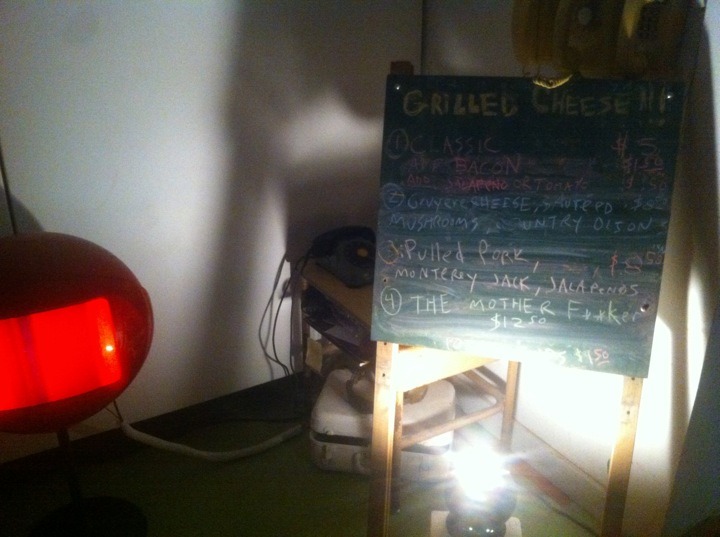 GRILLED CHEESE!!!
① CLASSIC $5
ADD BACON $1.50
ADD JALAPENO OR TOMATO $.50
② Gruyere CHEESE, SAUTEED
MUSHROOMS, COUNTRY DIJON
③ Pulled Pork,
MONTEREY JACK, JALAPENOS
④ THE MOTHER F**ker
$12.50
$1.50